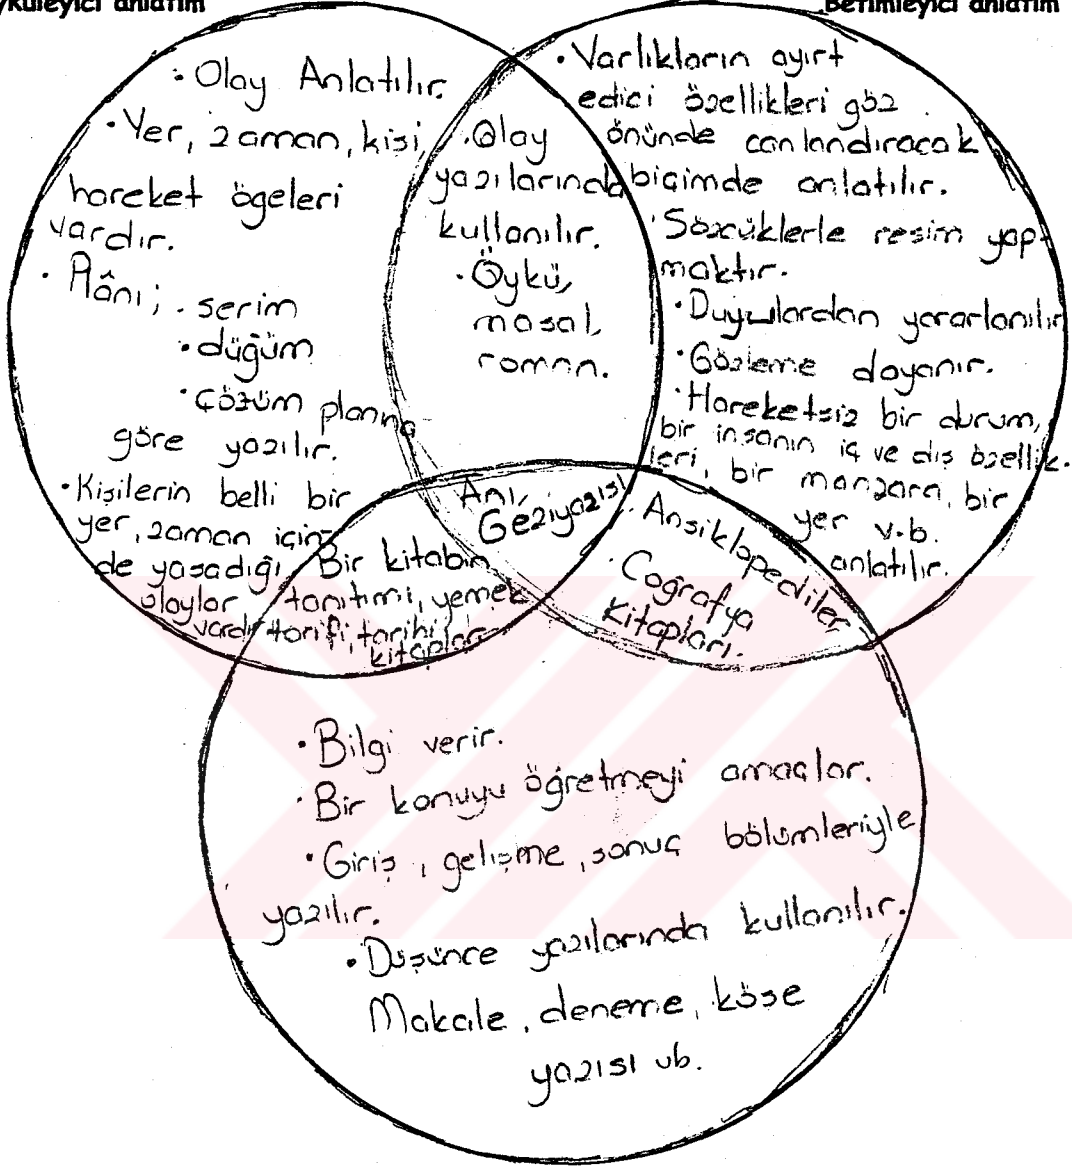 yküleyici anlatım
Betimleyici anlatım
• Olay Anlatılır.
• Yer, zaman, kişi,
hareket ögeleri
vardır.
• Plânı; • serim
• düğüm
• çözüm planına
göre yazılır.
• Kişilerin belli bir
yer, zaman için-
de yaşadığı
olaylar
vardır
• Olay
yazılarında
kullanılır.
• Öykü,
masal,
roman.
• Varlıkların ayırt
edici özellikleri göz
önünde canlandıracak
biçimde anlatılır.
• Sözcüklerle resim yap-
maktır.
• Duyulardan yararlanılır
• Gözleme dayanır.
• Hareketsiz bir durum,
bir insanın iç ve dış özellik-
leri, bir manzara, bir
yer v.b.
anlatılır.
Anı,
Geziyazısı
Bir kitabın
tanıtımı, yemek
tarifi, tarihi
kitaplar
• Ansiklopediler,
• Coğrafya
Kitapları.
• Bilgi verir.
• Bir konuyu öğretmeyi amaçlar.
• Giriş, gelişme, sonuç bölümleriyle
yazılır.
• Düşünce yazılarında kullanılır.
Makale, deneme, köşe
yazısı vb.